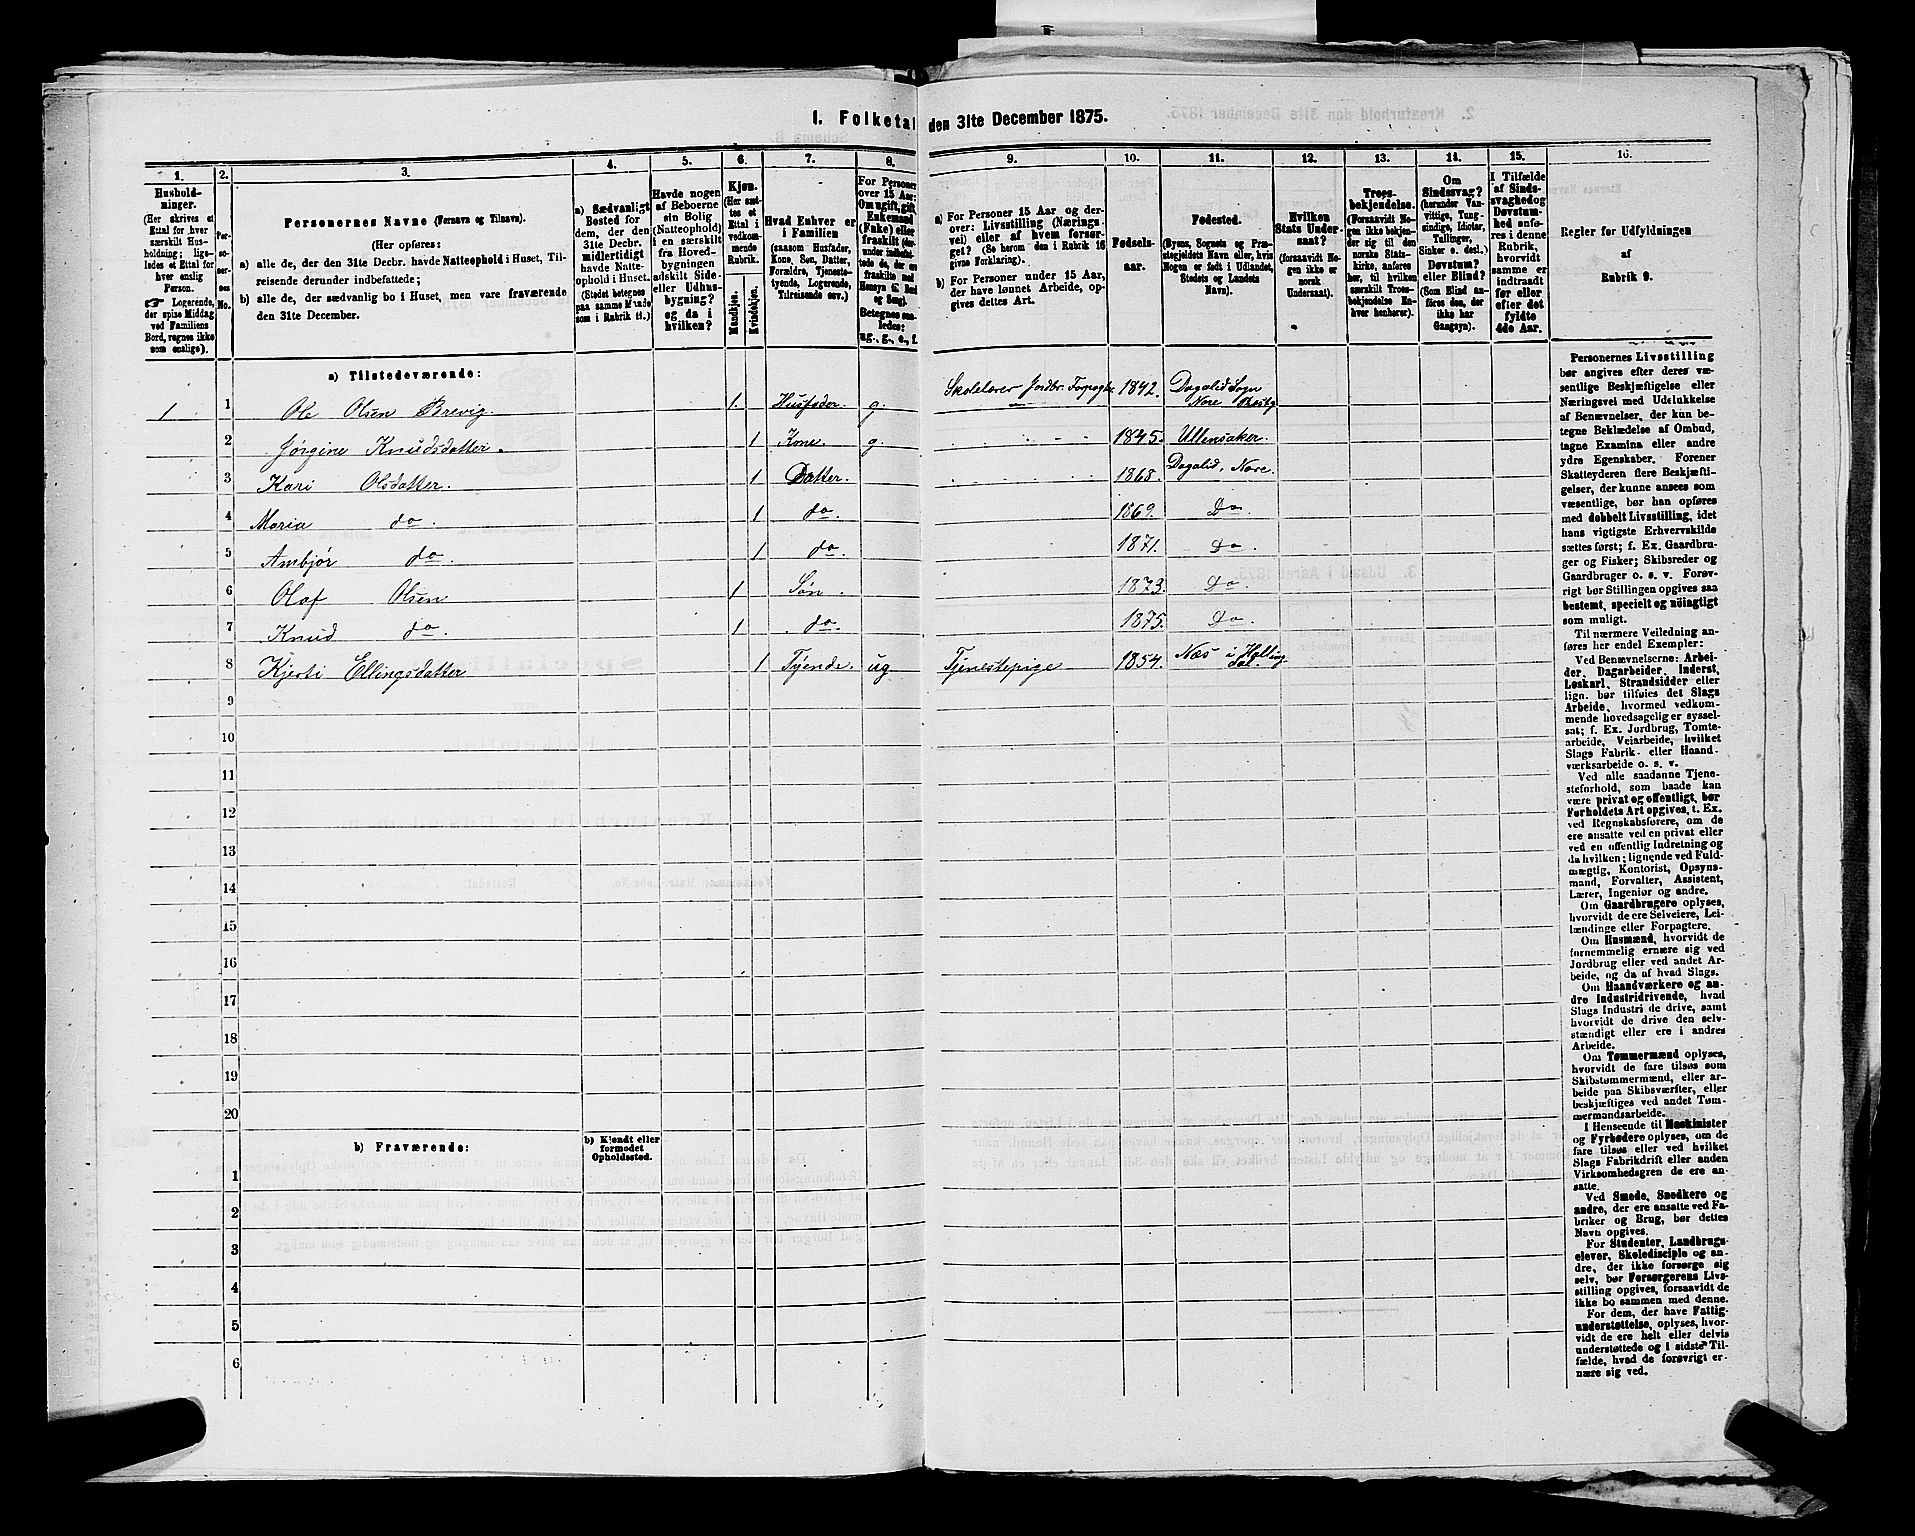 I. Folketal den 31te December 1875.
1. 2. 3. 4. 5. 6. 7. 8. 9. 10. 11. 12. 13. 14. 15. 16.
Hushold-
ninger.
(Her skrives et
Ettal for hver
særskilt Hus-
holdning; lige-
ledes et Ettal for
hver enslig
Person.
☞ Logerende,
der spise Middag
ved Familiens
Bord, regnes ikke
som enslige).
Per-
so-
ner-
nes
No.
Personernes Navne (Fornavn og Tilnavn).
(Her opføres:
a) alle de, der den 31te Decbr. havde Natteophold i Huset, Til-
reisende derunder indbefattede;
b) alle de, der sædvanlig bo i Huset, men vare fraværende
den 31te December.
a) Sædvanligt
Bosted for
dem, der den
31te Decbr.
midlertidigt
havde Natte-
ophold i Huset.
(Stedet betegnes
paa samme Maade
som i Rubrik 11.)
Havde nogen
af Beboerne
sin Bolig
(Natteophold)
i en særskilt
fra Hoved-
bygningen
adskilt Side-
eller Udhus-
bygning?
og da i
hvilken?
Kjøn.
(Her sæt-
tes et
Ettal i
vedkom-
mende
Rubrik.
Mandkjøn.
Kvindekjøn.
Hvad Enhver er
i Familien
(saasom Husfader,
Kone, Søn, Datter,
Forældre, Tjeneste-
tyende, Logerende,
Tilreisende osv.)
For Personer
over 15 Aar:
Om ugift, gift,
Enkemand
(Enke) eller
fraskilt
Betegnes saa-
ledes:
ug., g., e., f.
a) For Personer 15 Aar og der-
over: Livsstilling (Nærings-
vei) eller af hvem forsør-
get? (Se herom den i Rubrik 16
givne Forklaring.)
b) For Personer under 15 Aar,
der have lønnet Arbeide, op-
gives dettes Art.
Fødsels-
aar.
Fødested.
(Byens, Sognets og Præ-
stegjeldets Navn eller, hvis
Nogen er født i Udlandet,
Stedets og Landets
Navn).
Hvilken
Stats Under-
saat?
(forsaavidt No-
gen ikke er
norsk
Undersaat).
Troes-
bekjendelse.
(Forsaavidt No-
gen ikke bekjen-
der sig til den
norske Stats-
kirke, anføres
her, til hvilken
særskilt Troes-
bekjendelse En-
hver henhører).
Om
Sindssvag?
(herunder Van-
vittige, Tung-
sindige, Idioter,
Tullinger,
Sinker o. desl.)
Døvstum?
eller Blind?
(Som Blind an-
føres den, der
ikke har
Gangsyn).
I Tilfælde
af Sinds-
svaghed og
Døvstum-
hed anfø-
res i denne
Rubrik,
hvorvidt
samme er
indtraadt
før eller
efter det
fyldte
4de Aar.
Regler for Udfyldningen
af
Rubrik 9.
a) Tilstedeværende:
1 1 Ole Olsen Brevig. 1. Husfader. g. Skolelærer Jordbr. Forpagter 1842. Dagalid Sogn
Nore
2 Jørgine Knudsdatter. 1 Kone. g 1845. Ullensaker.
3 Kari Olsdatter. 1 Datter. 1868. Dagalid, Nore.
4 Maria do. 1 do. 1869. Do.
5 Ambjør do. 1 do. 1871. Do.
6 Olaf Olsen 1 Søn. 1873. Do.
7 Knud do. 1 do. 1875. Do.
8 Kjersti Ellingsdatter 1 Tyende. ug Tjenestepige 1854. Næs i Halling
dal
9
10
11
12
13
14
15
16
17
18
19
20
b) Fraværende:
b) Kjendt eller
formodet
Opholdssted.
1
2
3
4
5
6
Personernes Livsstilling
bør angives efter deres væ-
sentlige Beskjæftigelse eller
Næringsvei med Udelukkelse
af Benævnelser, der kun be-
tegne Beklædelse af Ombud,
tagne Examina eller andre
ydre Egenskaber. Forener
Skatteyderen flere Beskjæfti-
gelser, der kunne ansees som
væsentlige, bør han opføres
med dobbelt Livsstilling, idet
hans vigtigste Erhvervskilde
sættes først; f. Ex. Gaardbru-
ger og Fisker; Skibsreder og
Gaardbruger o. s. v. Forøv-
rigt bør Stillingen opgives saa
bestemt, specielt og nøiagtigt
som muligt.
Til nærmere Veiledning an-
føres her endel Exempler:
Ved Benævnelserne: Arbei-
der, Dagarbeider, Inderst,
Løskarl, Strandsidder eller
lign. bør tilføies det Slags
Arbeide, hvormed vedkom-
mende hovedsagelig er syssel-
sat; f. Ex. Jordbrug, Tomte-
arbeide, Veiarbeide, hvilket
Slags Fabrik- eller Haand-
værksarbeide o. s. v.
Ved alle saadanne Tjene-
steforhold, som baade kan
være privat og offentligt, bør
Forholdets Art opgives, t. Ex.
ved Regnskabsførere, om de
ere ansatte ved en privat eller
ved en offentlig Indretning og
da hvilken; lignende ved Fuld-
mægtig, Kontorist, Opsyns-
mand, Forvalter, Assistent,
Lærer, Ingeniør og andre.
Om Gaardbrugere oplyses,
hvorvidt de ere Selveiere, Lei-
lændinge eller Forpagtere.
Om Husmænd, hvorvidt de
fornemmelig ernære sig ved
Jordbrug eller ved andet Ar-
beide, og da af hvad Slags.
Om Haandværkere og an-
dre Industridrivende, hvad
Slags Industri de drive, samt
hvorvidt de drive den selv-
stændigt eller ere i andres
Arbeide.
Om Tømmermænd oplyses,
hvorvidt de fare tilsøs som
Skibstømmermænd, eller ar-
beide paa Skibsværfter, eller
beskjæftiges ved andet Tøm-
mermandsarbeide.
I Henseende til Maskinister
og Fyrbødere oplyses, om de
fare tilsøs eller ved hvilket
Slags Fabrikdrift eller anden
Virksomhedsgren de ere an-
satte.
Ved Smede, Snedkere og
andre, der ere ansatte ved Fa-
briker og Brug, bør dettes
Navn opgives.
For Studenter, Landbrugs-
elever, Skoledisciple og an-
dre, der ikke forsørge sig
selv, bør Forsørgerens Livs-
stilling opgives, forsaavidt de
ikke bo sammen med denne.
For dem, der have Fattig-
understøttelse, oplyses, hvor-
vidt de ere helt eller delvis
understøttede og i sidste Til-
fælde, hvad de forøvrigt er-
nære sig ved.